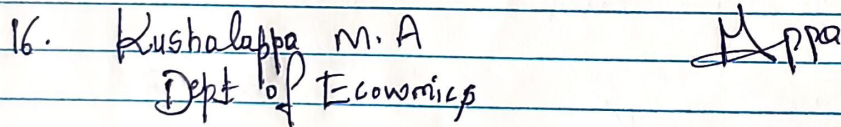 16. Kushalappa M. A
Dept of Economics